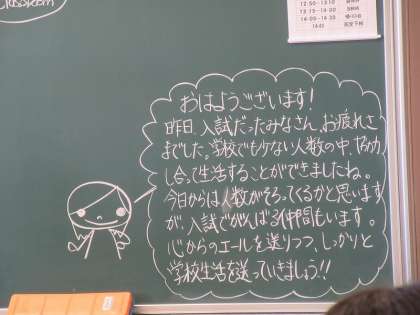 classroom
12:50-13:10
13:15-14:00
14:05-14:35
14:45
おはようございます！
昨日、入試だったみなさん、お疲れさ
までした。学校でも少ない人数の中、協力
し合って生活することができましたね。
今日からは人数がそろってくるかと思います
が、入試でがんばる仲間もいます。
心からのエールを送りつつ、しっかりと
学校生活を送っていきましょう!!